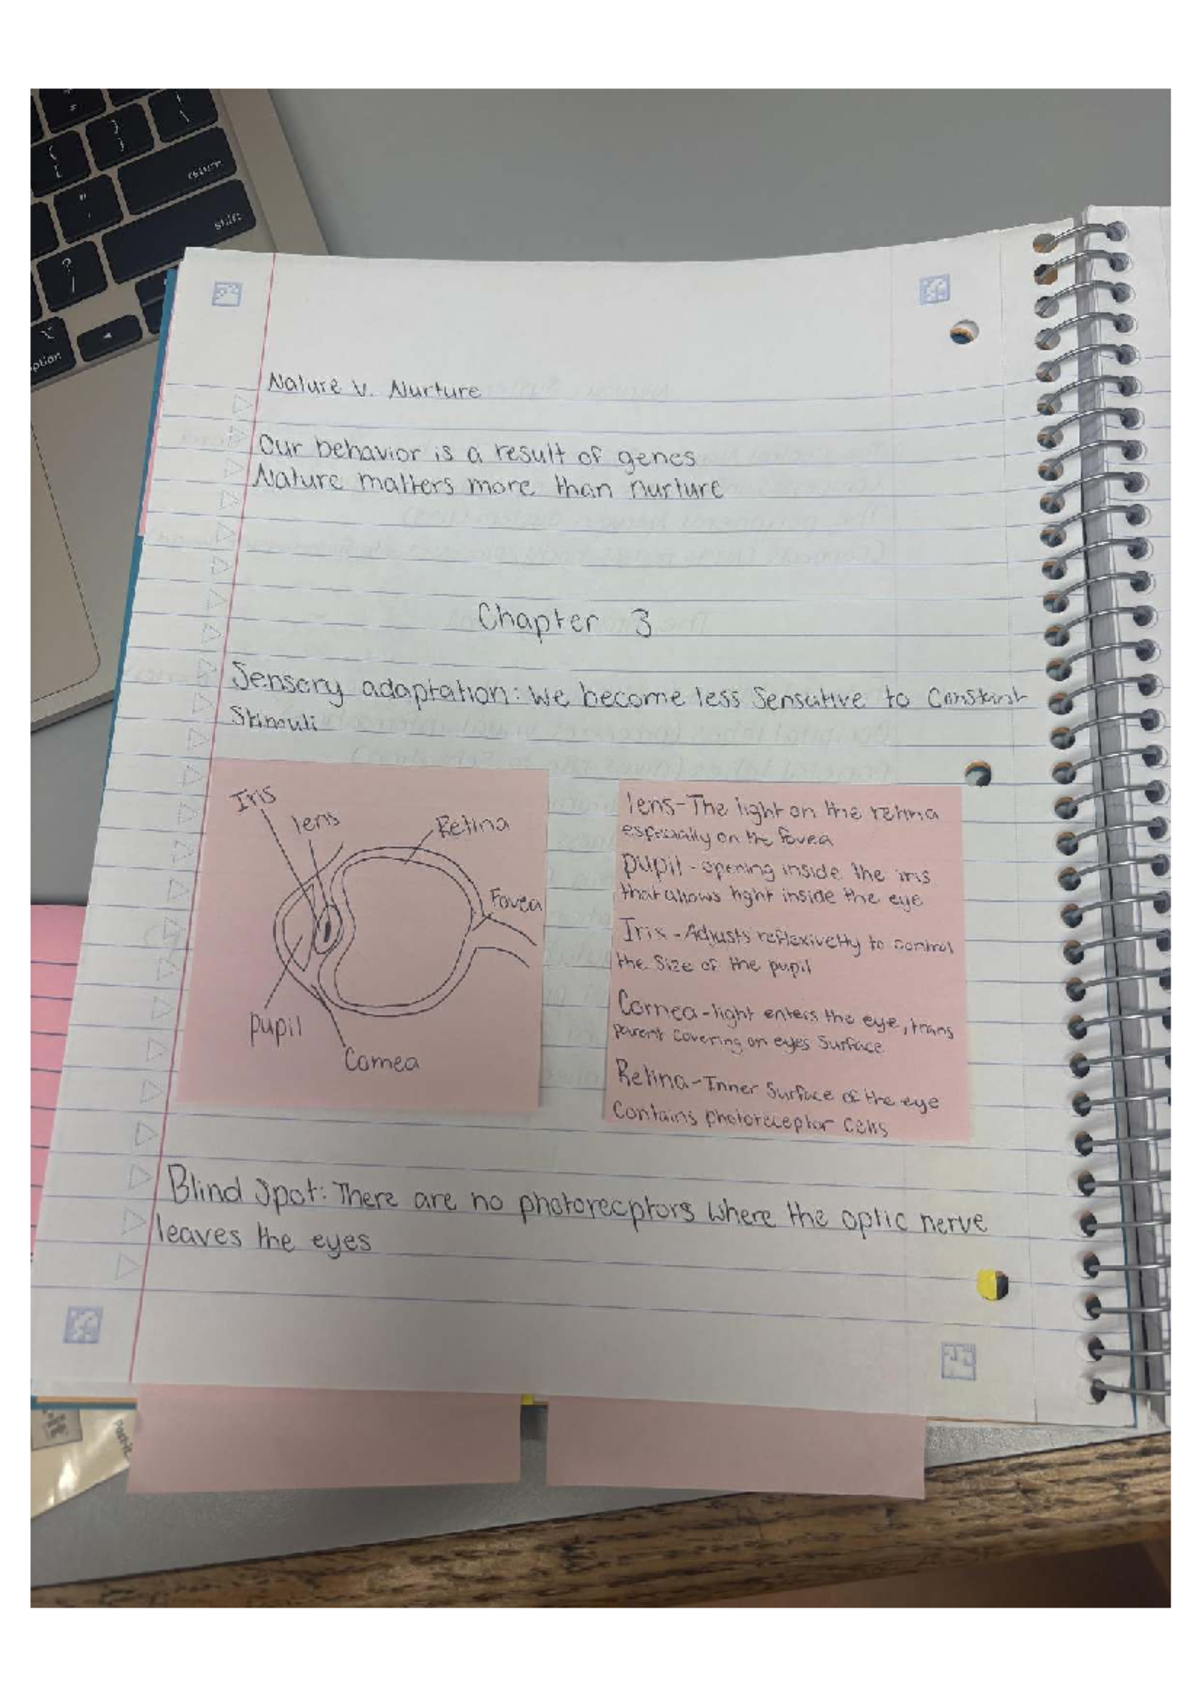 return
shift
option
Nature v. Nurture
Our behavior is a result of genes
Nature matters more than nurture
Chapter 3
Sensory adaptation: we become less Sensative to Constant
Stimuli
Iris
lens
Retina
Fovea
pupil
Cornea
lens-The light on the retina
especially on the fovea
pupil - opening inside the iris
that allows light inside the eye
Iris - Adjusts reflexivetly to control
the Size of the pupil
Cornea - light enters the eye, trans
parent covering on eyes Surface
Retina-Inner Surface of the eye
Contains photoreceptor cells
Blind Spot: There are no photorecptors where the optic nerve
leaves the eyes